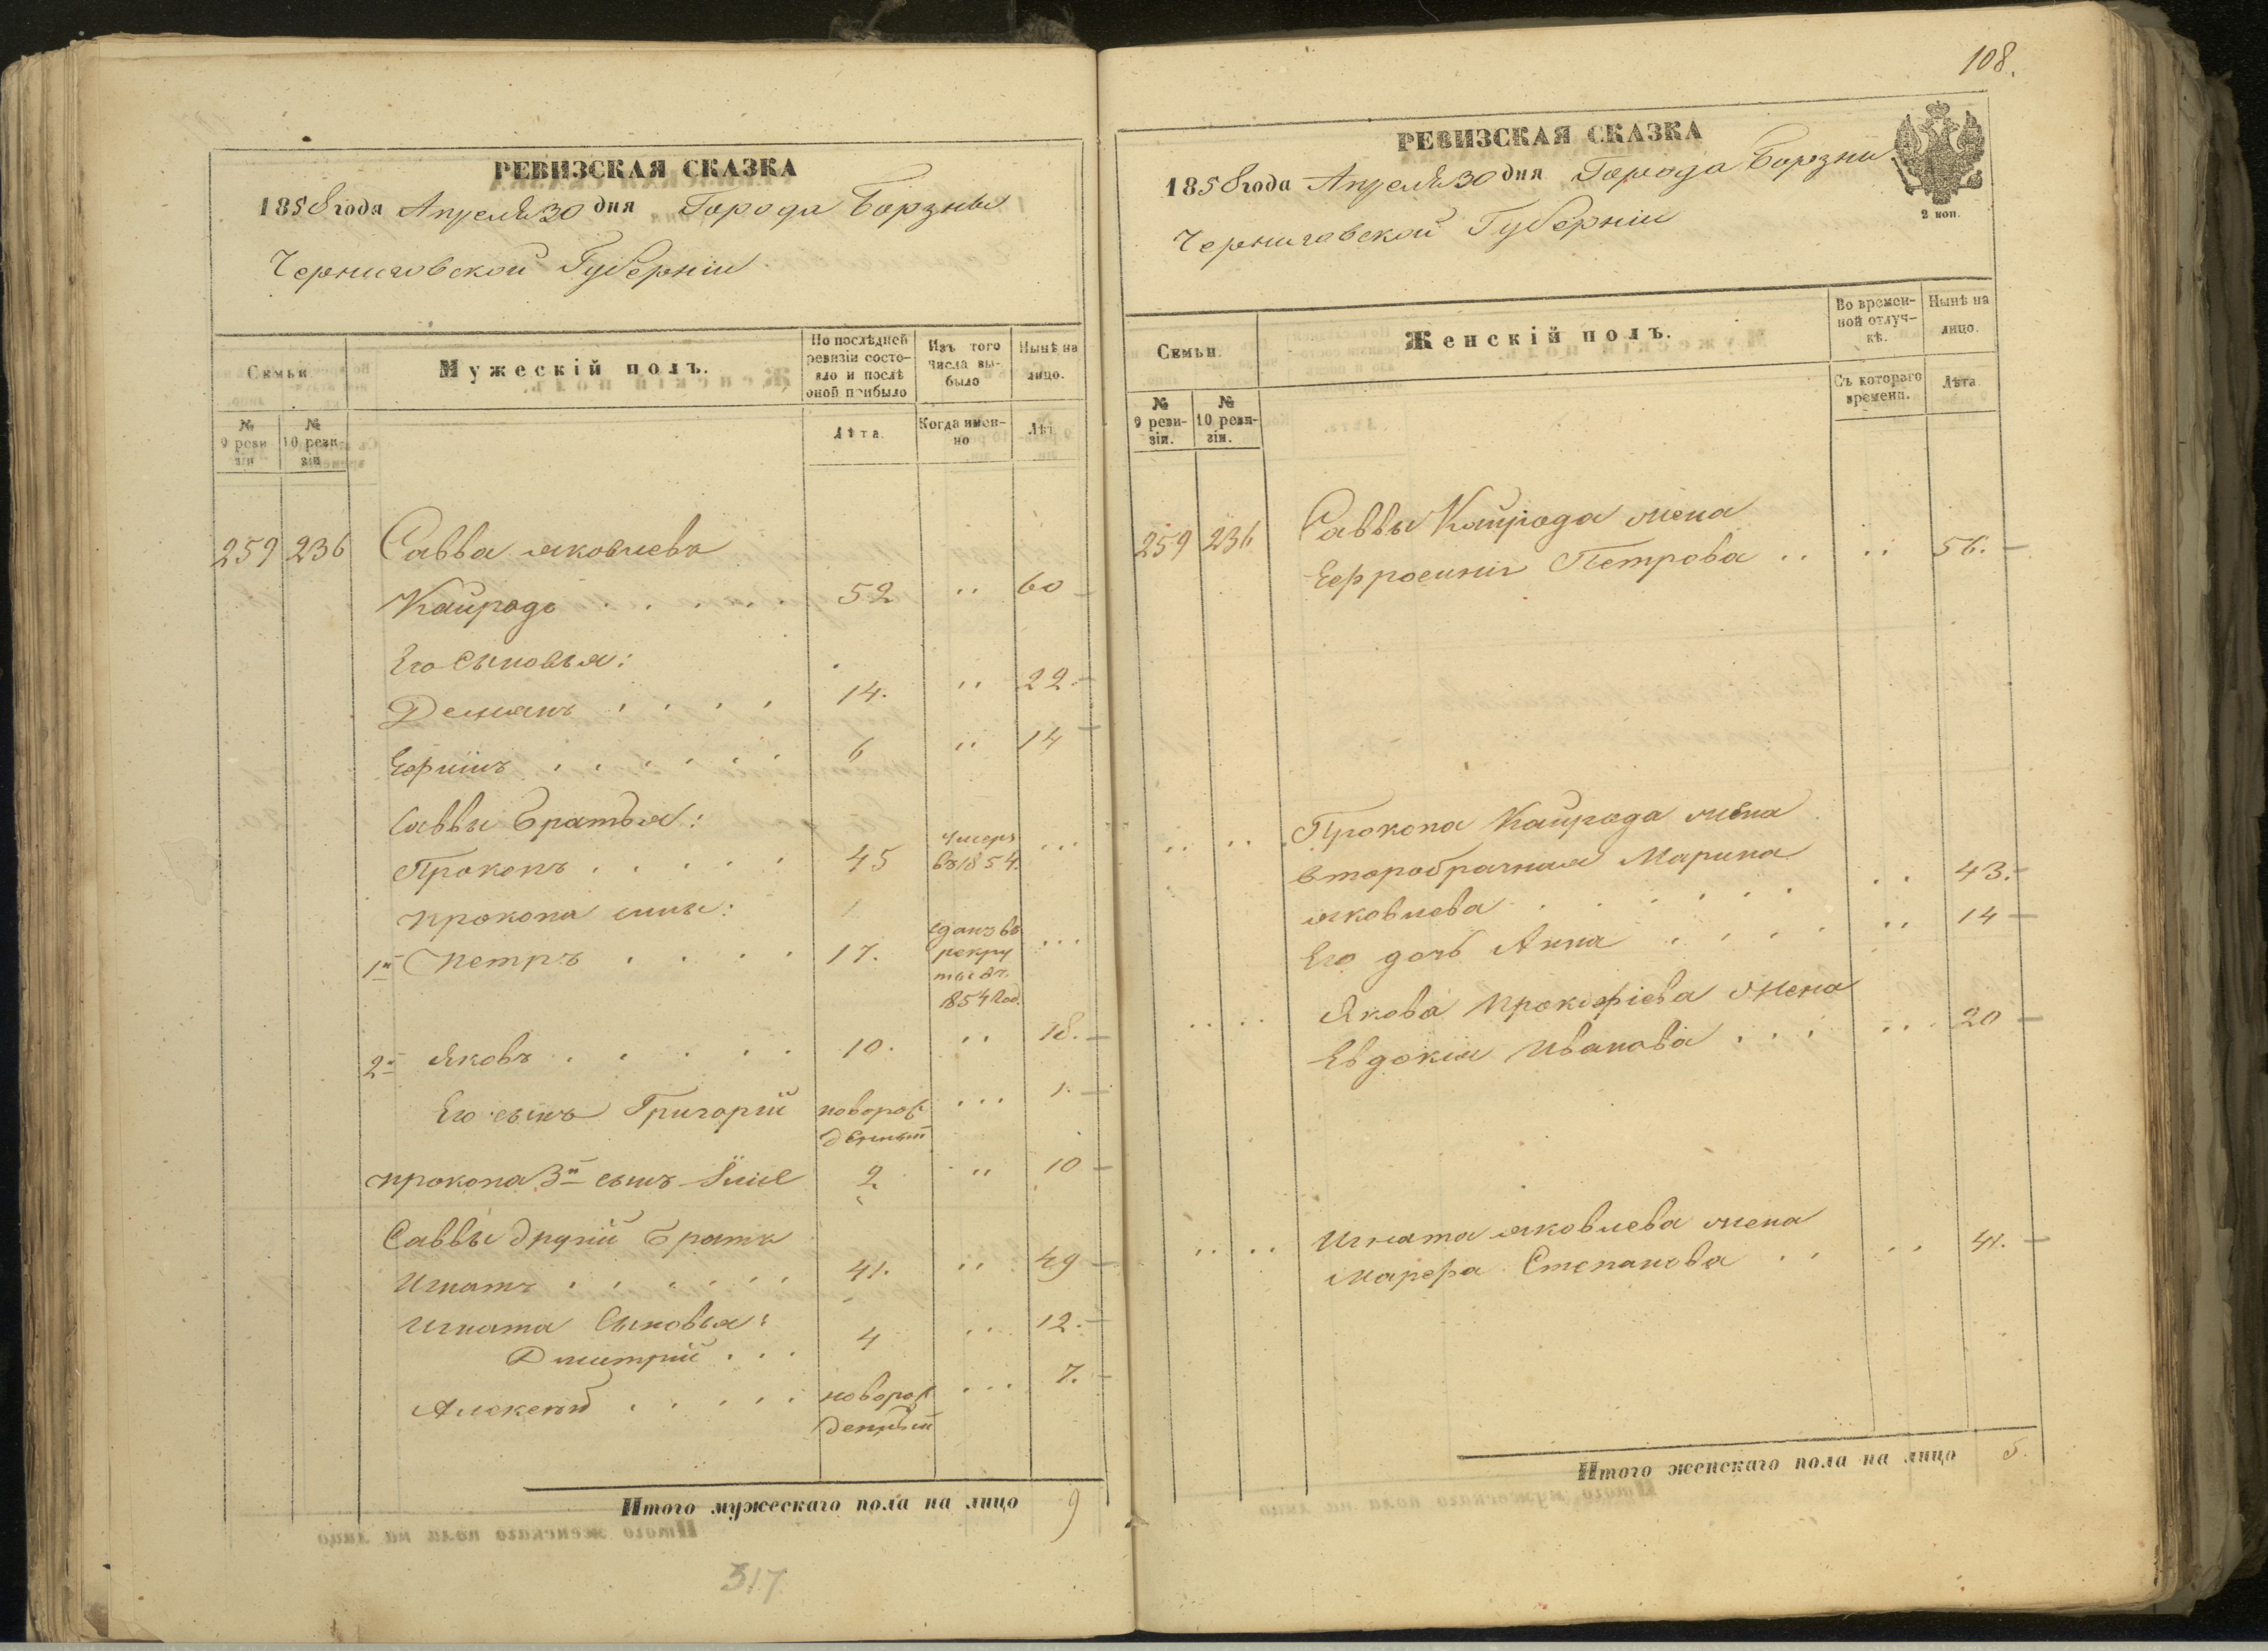 РЕВИЗСКАЯ СКАЗКА
1858 года Апреля 30 дня Города Борзны
Черниговской Губерніи
Семьи
Мужескій полъ.
По послѣдней ревизіи состояло и послѣ оной прибыло
Изъ того числа выбыло
Нынѣ на лицо.
№ 9 ревизіи
№ 10 ревизіи
Лѣта
Когда именно
Лѣта
259 236 Савва Яковлевъ
Кайрода . . . . . . 52 " 60
Его Сыновья:
Демьянъ . . . . 14. " 22.
Ефимъ . . . . . . 6 " 14
Саввы братья:
Прокопъ . . . . . 45 умеръ въ 1854. ...
Прокопа сыны:
1й Петръ . . . . 17. сданъ въ рекруты въ 1854 год. ...
2й Яковъ . . . . . 10. " 18.
Его сынъ Григорій новорожденный ... 1.
Прокопа 3й сынъ 2 " 10
Саввы другій братъ
Игнатъ . . . . . . 41. " 49
Игната Сыновья:
Дмитрій . . . 4 " 12.
Алексѣй . . . . . новорожденный ... 7.
Итого мужескаго пола на лицо 9
317
108.
РЕВИЗСКАЯ СКАЗКА
1858 года Апреля 30 дня Города Борзны
2 коп.
Черниговской Губерніи
Семьи.
Женскій полъ.
Во временной отлучкѣ.
Нынѣ на лицо.
№ 9 ревизіи.
№ 10 ревизіи.
Съ котораго времени.
Лѣта
259 236 Саввы Кайрода жена
Ефросинія Петрова .. .. 56.
.. .. Прокопа Кайрода жена
второбрачная Марина
Яковлева . . . . . . .. 43.
Его дочь Анна . . . . .. 14
.. .. Якова Прокофіева жена
Евдокія Иванова . . . ... 20
.. .. Игната Яковлева жена
Марфа Степанова . . .. 41.
Итого женскаго пола на лицо 5.